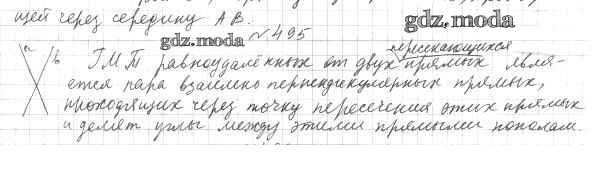 щей через середину AB.
gdz.moda
gdz.moda
№495
a b ГМТ равноудалённых от двух пересекающихся прямых явля-
ется пара взаимно перпендикулярных прямых,
проходящих через точку пересечения этих прямых
и делят углы между этими прямыми пополам.